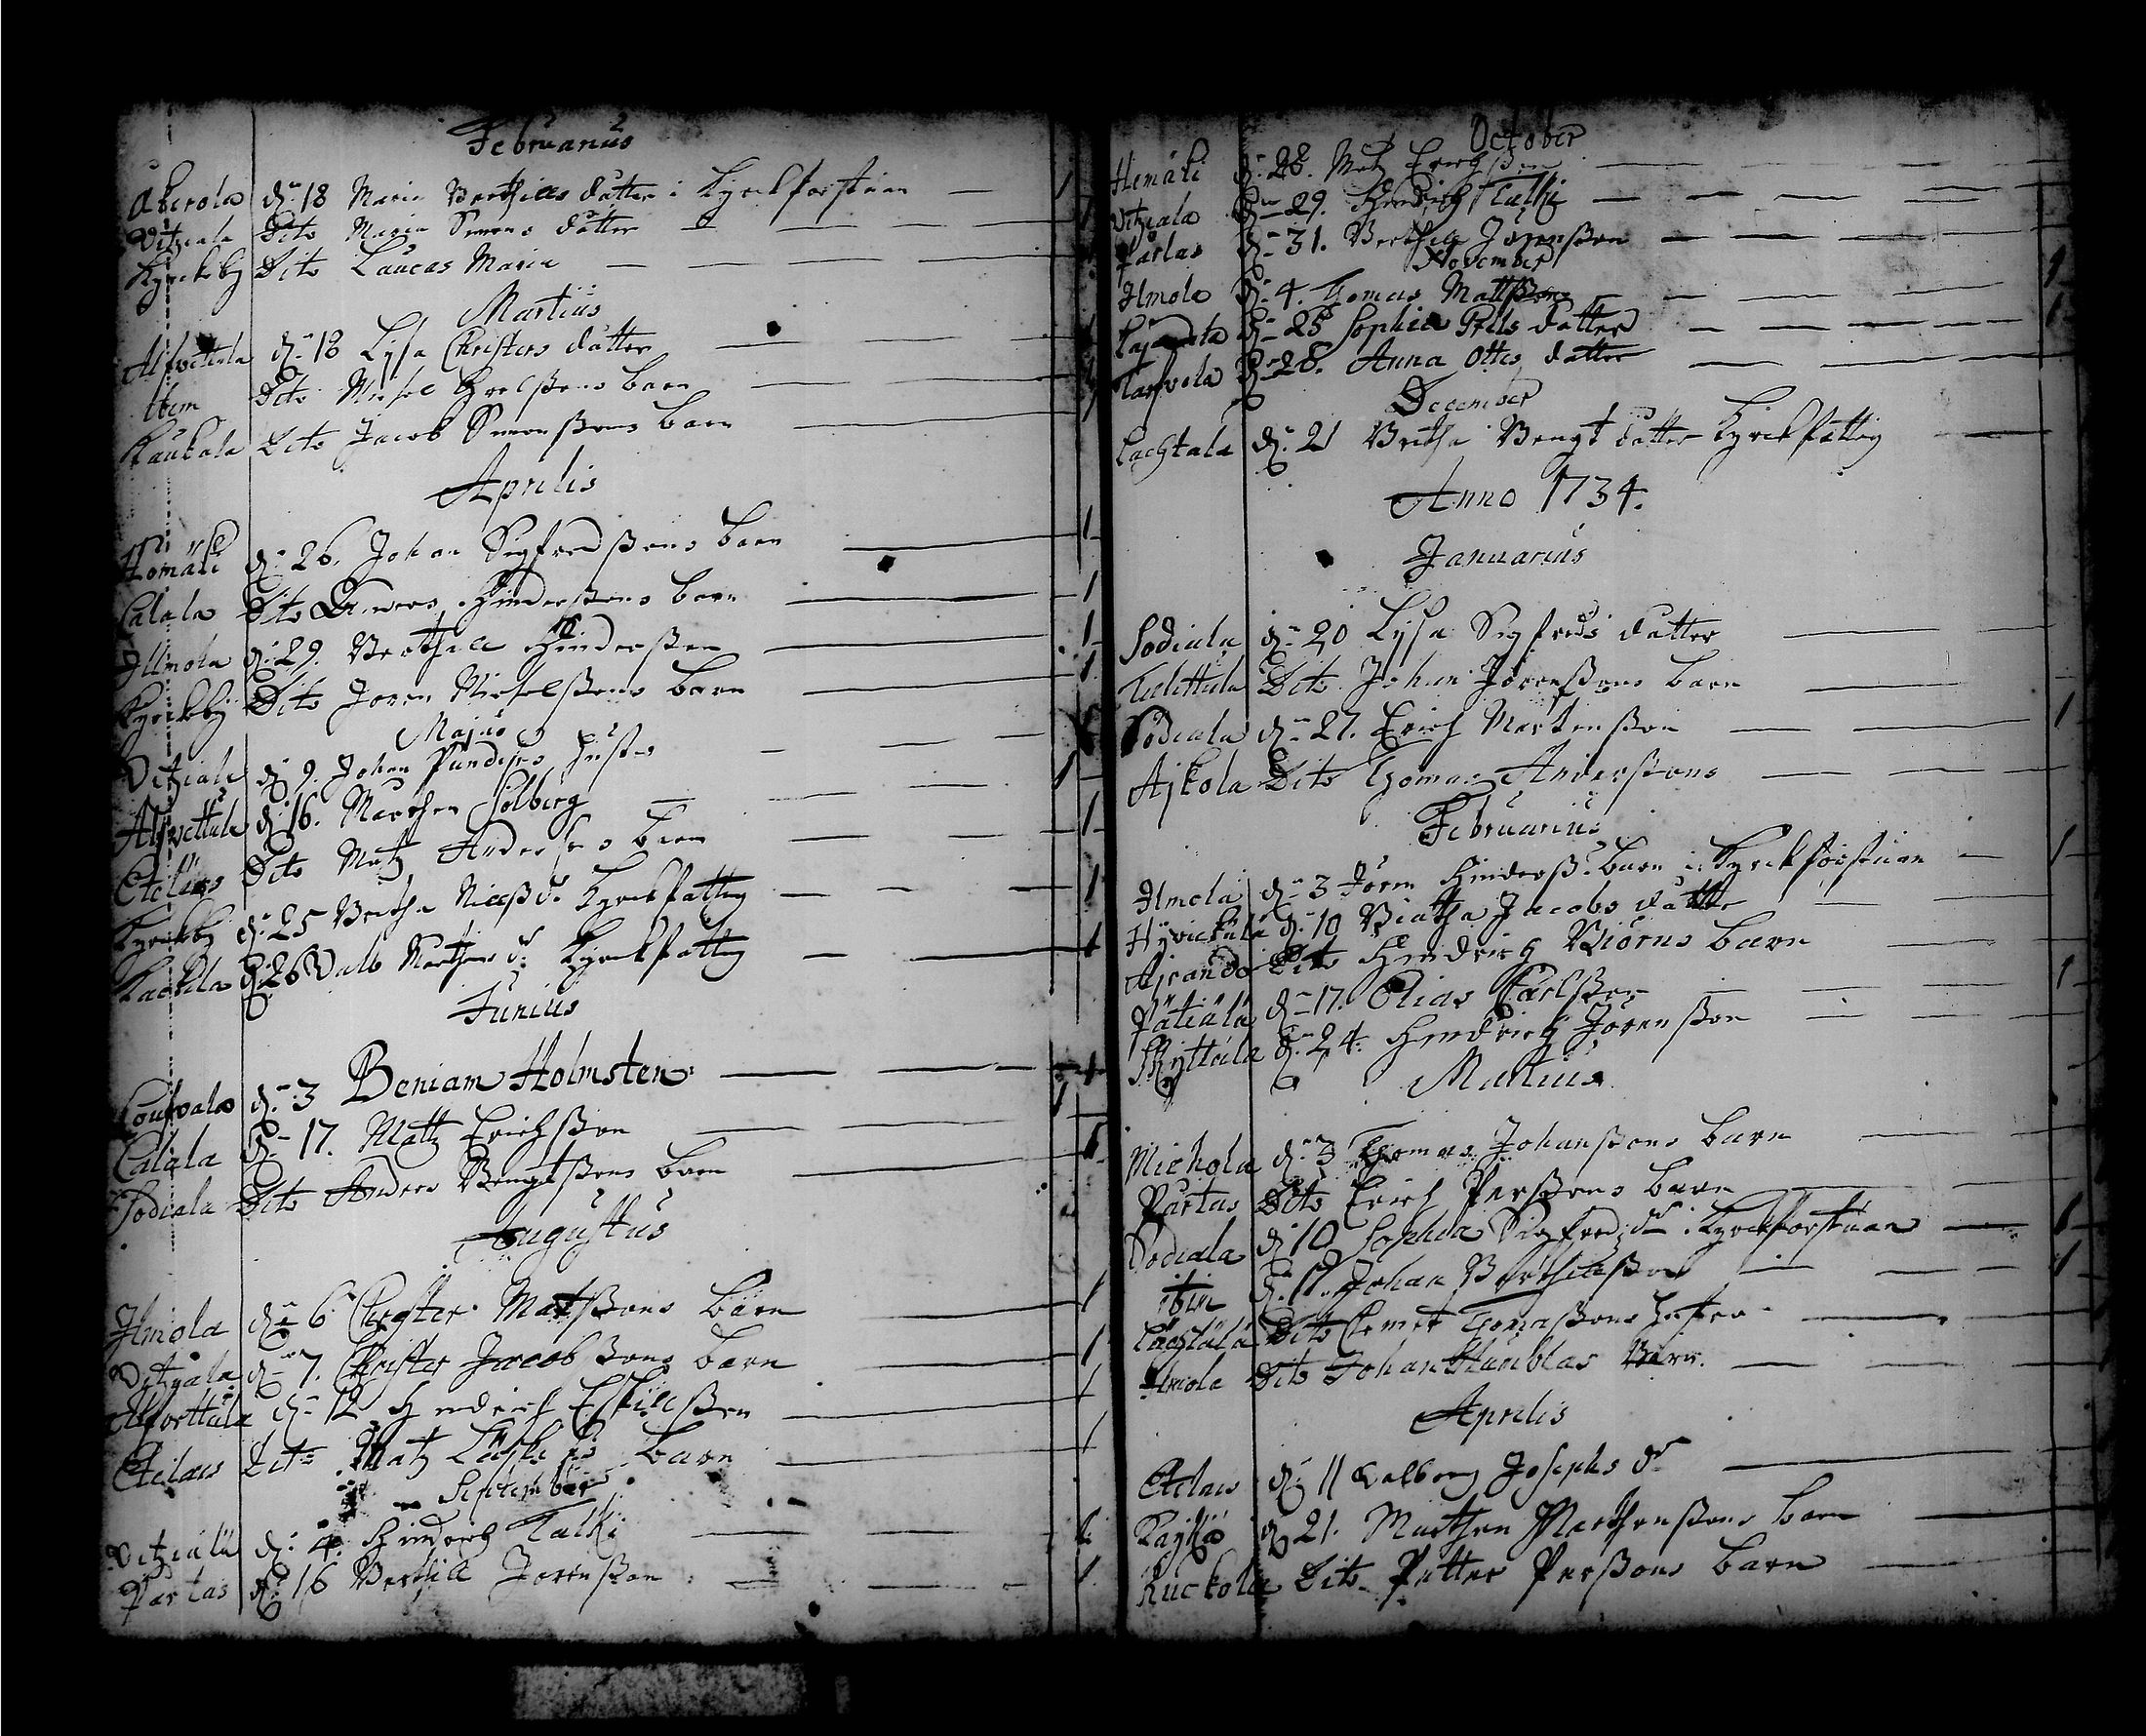 Februarius
Akerola d. 18 Maria Berthills dåtter i Kyrckforstuan — 1
Vitziala Dito Maria Simons dåtter —
Kyrckby Dito Laucas Maria —
Martius
Alfvettula d. 18 Lysa Christers dåtter —
Ibem Dito Michel barn —
Kaukala Dito Jacob Simonßons barn —
Aprilis
d. 26. Johan Sigfredßons barn — 1
Calala Dito Hinderßons barn — 1
Illmola d. 29. Berthill Hinderßon — 1
Kyrckby Dito Joren Michelßons barn — 1
Majus
Vitziala d. 9. Johan hustro —
Alfvettula d. 16. Marthen Solberg — 1
Etelais Dito Matz barn — 1
Kyrckby d. 25 Britha Kyrckfattig — 1
d. 26 Valb Marthens d. Kyrckfattig — 1
Junius
d. 3 Beniam Holmsten — 1
Calala d. 17. Mattz Erichßon —
Sodiala Dito Anders Bengtßons barn —
Augustus
Ilmola d. 6 Christer Matßons barn — 1
Vitziala d. 7. Christer Jacobßons barn — 1
Alfvettula d. 12 Hindrich Eskillßon — 1
Etelais Dito Matz barn — 1
September
Vitziala d. 4. Hindrich Talki — 1
Partas d. 16 Berthill Jörenßon — 1
October
Hemäki d. 28. Matz Erichßon —
Vitziala d. 29. Hindrich Talki —
Partas d. 31. Berthill Jörenßon —
November
Ilmola d. 4. Thomas Mattßon — 1
d. 25 Sophia Påls dåtter — 1
d. 28. Anna Ottes dåtter —
December
Lachtala d. 21 Britha Bengt dåtter Kyrckfattig —
Anno 1734.
Januarius
Sodiala d. 20 Lysa Sigfreds dåtter —
Dito Johan Jörenßons barn —
Sodiala d. 27. Erich Mortenßon — 1
Ajkola Dito Thomas Anderßons —
Februarius
Ilmola d. 3 Jören Hinderß. barn i Kyrckforstuan — 1
d. 10 Jacobs dåtter —
Dito Hindrich Biörns barn —
Pätiälä d. 17. Elias Carlßon — 1
Skyttälä d. 24. Hindrich Jörenßon —
Martius
Michola d. 3 Thomas Johanßons barn —
Partas Dito Erich Perßons barn —
Sodiala d. 10 Sophia Sigfredz dr i Kyrckforstuan — 1
ibm d. 11. Johan Berthillßon — 1
Lachtala Dito Clemet Thomaßons hustro —
Ilmola Dito Johan Stanblas Barn. —
Aprilis
Etelais d. 11 Valborg Josephs dr —
d. 21. Marthen Marthenßons barn —
Ruckola Dito Petter Perßons barn —